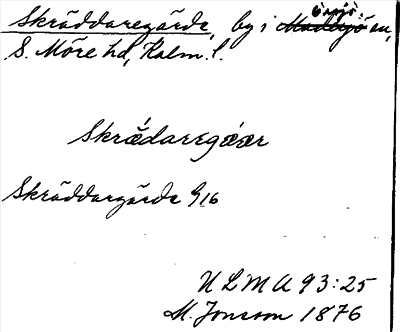 Skräddaregärde, by i Örsjö sn,
S. Möre hd, Kalm. l.
Skrǽdaregǽær
Skräddargärde G16
ULMA 93:25
M. Jonsson 1876